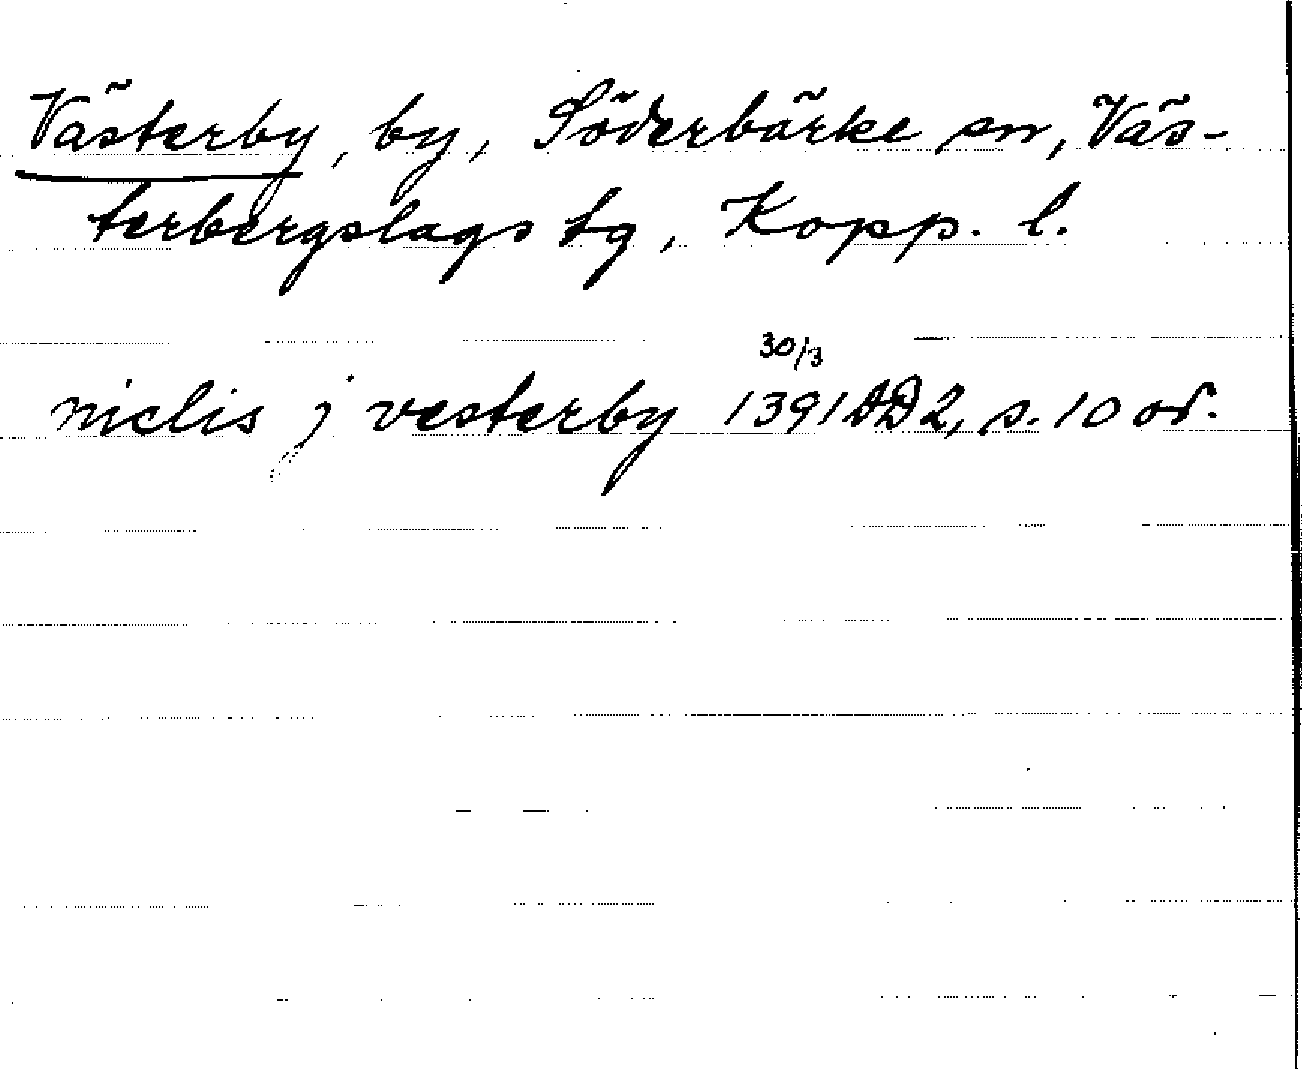 Västerby, by, Söderbärke sn, Väs-
terbergslags tg, Kopp. l.
30/3
niclis j vesterby 1391 DD 2, s. 10 or.